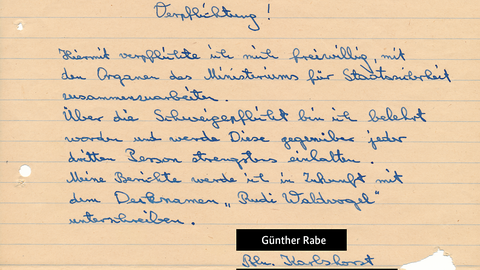 Verpflichtung!
Hiermit verpflichte ich mich freiwillig, mit
den Organen des Ministeriums für Staatssicherheit
zusammenzuarbeiten.
Über die Schweigepflicht bin ich belehrt
worden und werde Diese gegenüber jeder
dritten Person strengstens einhalten.
Meine Berichte werde ich in Zukunft mit
dem Decknamen „Rudi Waldvogel“
unterschreiben.
Günther Rabe
Bln. Karlshorst